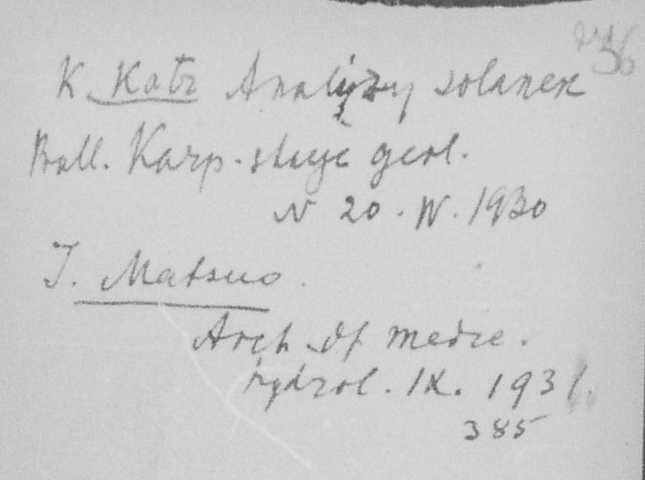 36
K. Katz Analizy solanek
Bull. Karp. stacji geol.
N 20. IV. 1930
J. Matsuo.
Arch of medic.
hydrol. IX. 1931.
385